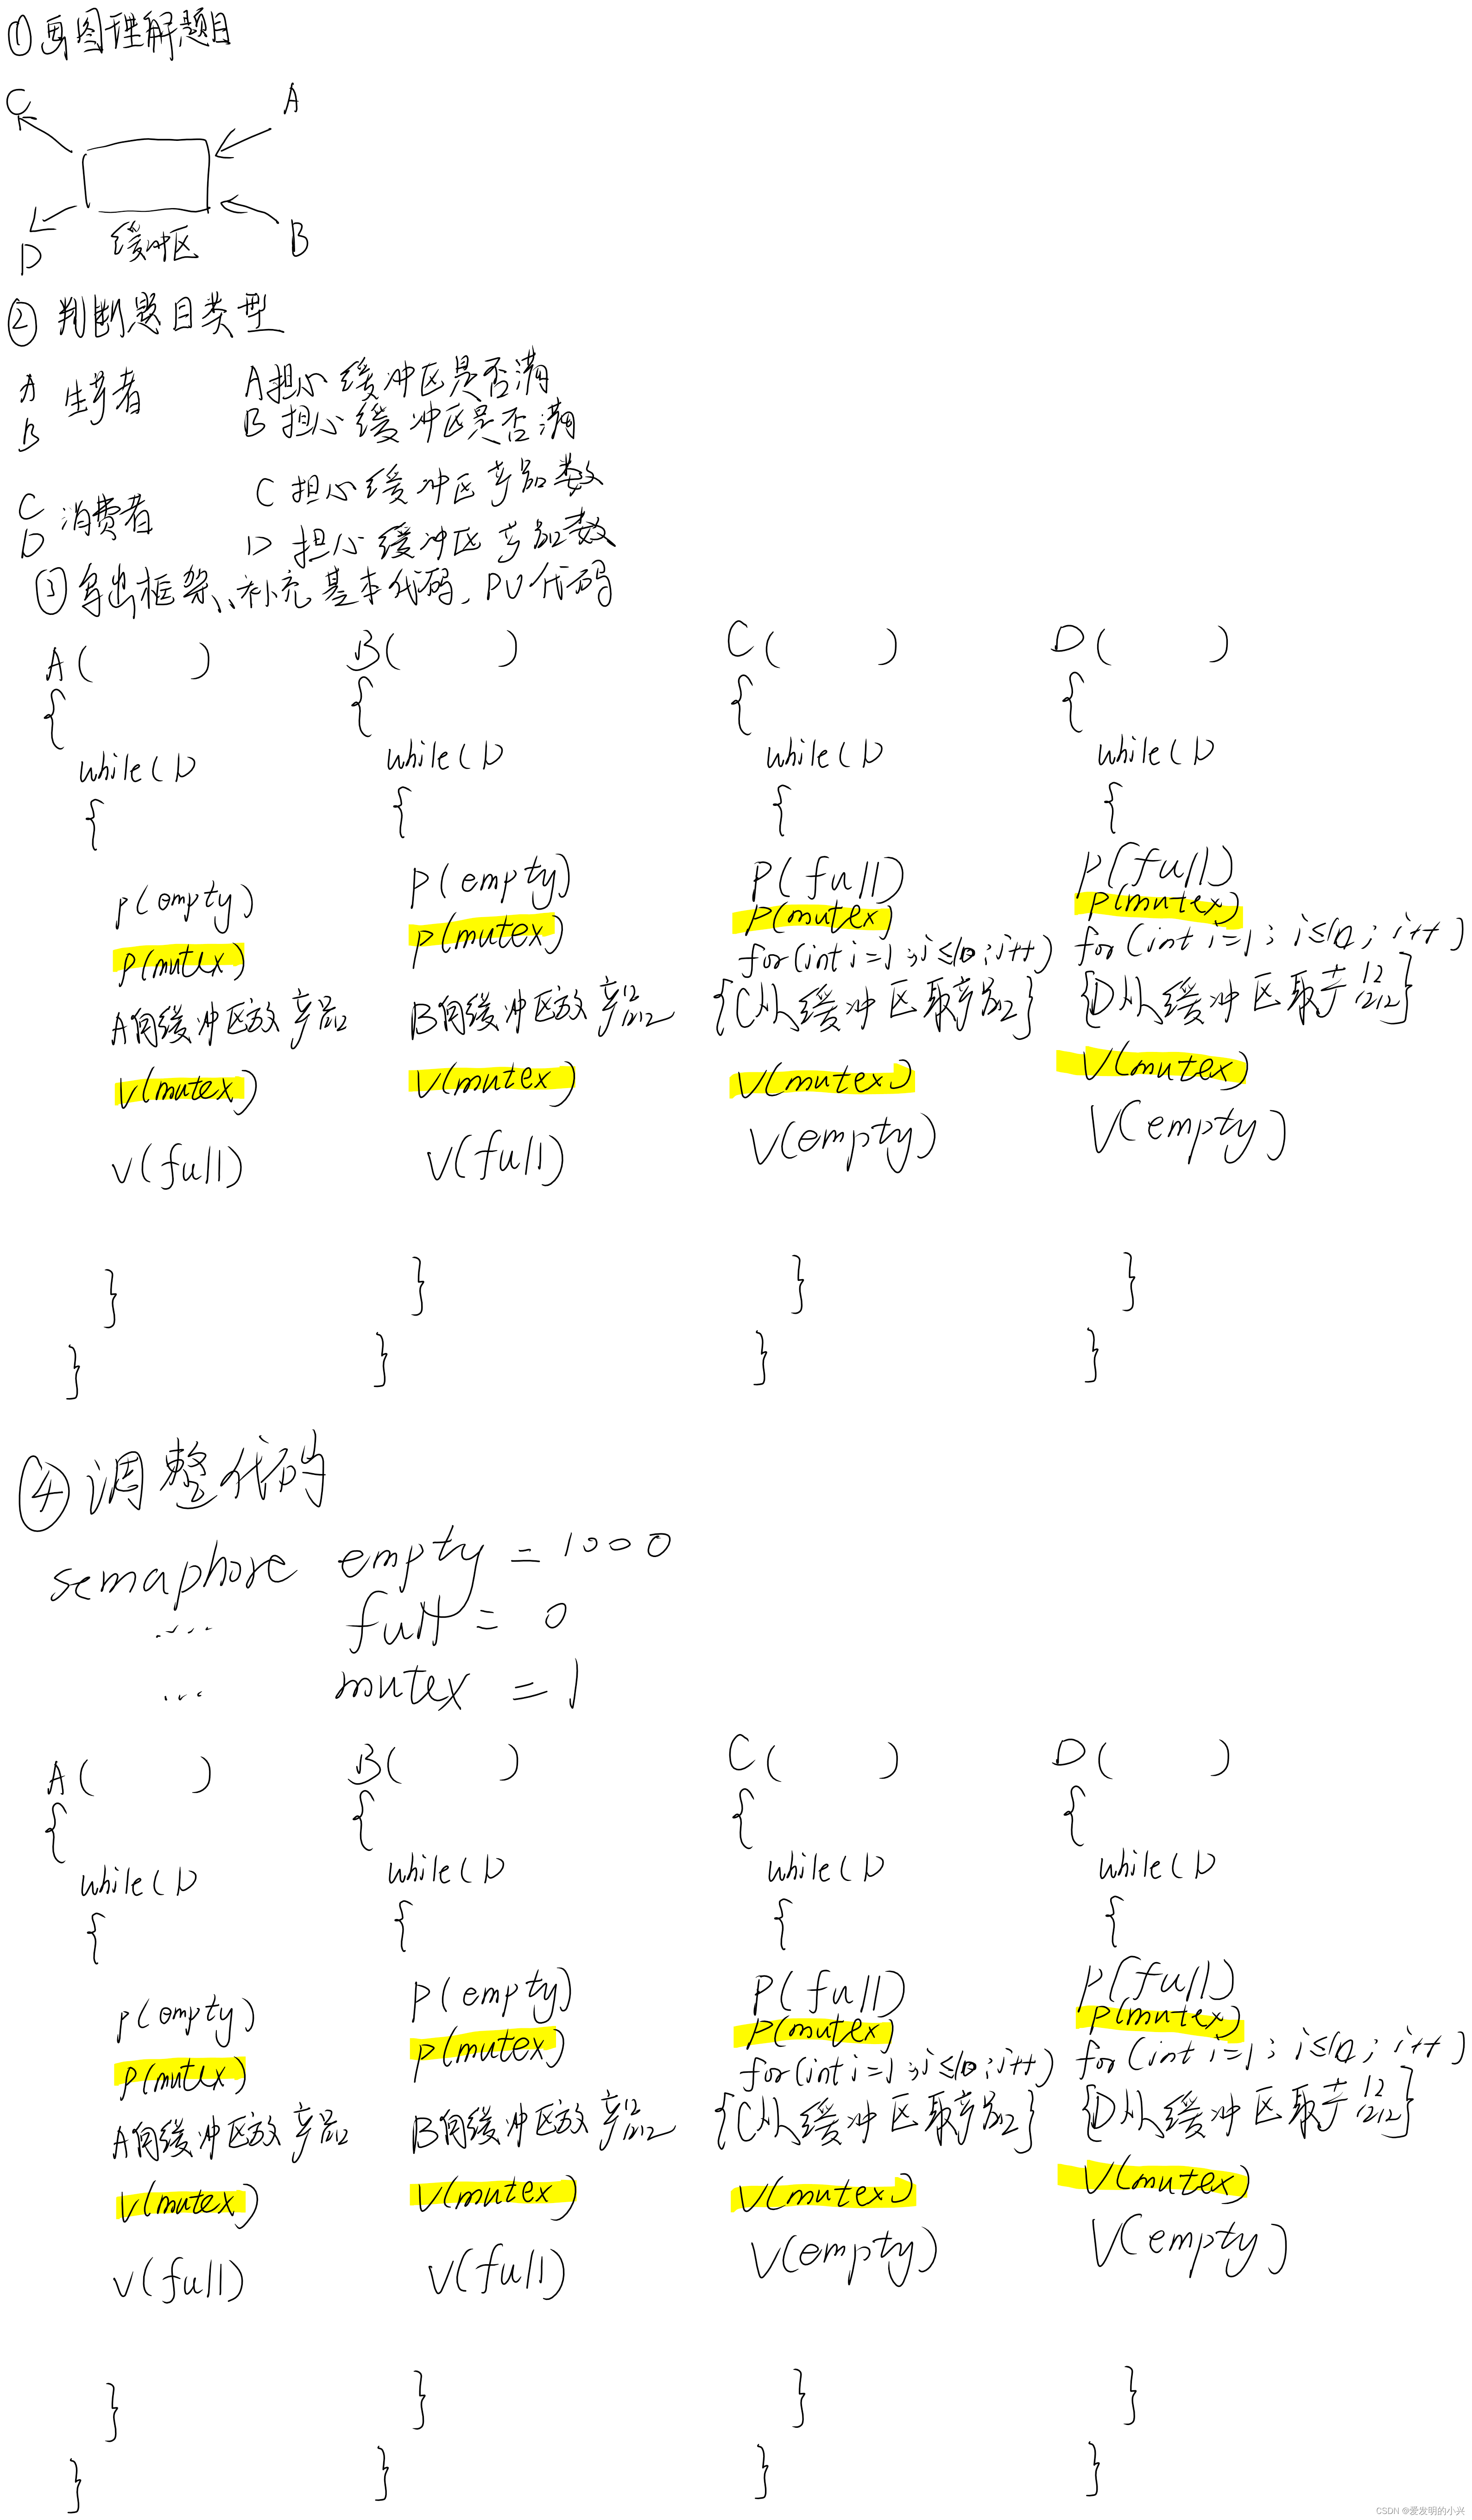 ①画图理解题目
C
A
D
缓冲区
B
② 判断题目类型
A
B
生产者
A担心缓冲区是否满
B担心缓冲区是否满
C
D
消费者
C担心缓冲区产品数
D担心缓冲区产品数
③写出框架、补充基本代码、PV代码
A( ) B( ) C( ) D( )
{ { { {
while(1) while(1) while(1) while(1)
{ { { {
p(empty) p(empty) p(full) p(full)
p(mutex) p(mutex) p(mutex) p(mutex)
for(int i=1;i≤10;i++) for(int i=1;i≤10;i++)
A向缓冲区放产品 B向缓冲区放产品 {C从缓冲区取产品} {D从缓冲区取产品}
v(mutex) v(mutex) v(mutex) v(mutex)
v(full) v(full) v(empty) v(empty)
} } } }
} } } }
④调整代码
semaphore empty=1000
.... full=0
... mutex=1
A( ) B( ) C( ) D( )
{ { { {
while(1) while(1) while(1) while(1)
{ { { {
p(empty) p(empty) p(full) p(full)
p(mutex) p(mutex) p(mutex) p(mutex)
for(int i=1;i≤10;i++) for(int i=1;i≤10;i++)
A向缓冲区放产品 B向缓冲区放产品 {C从缓冲区取产品} {D从缓冲区取产品}
v(mutex) v(mutex) v(mutex) v(mutex)
v(full) v(full) v(empty) v(empty)
} } } }
} } } }
CSDN @爱发明的小兴